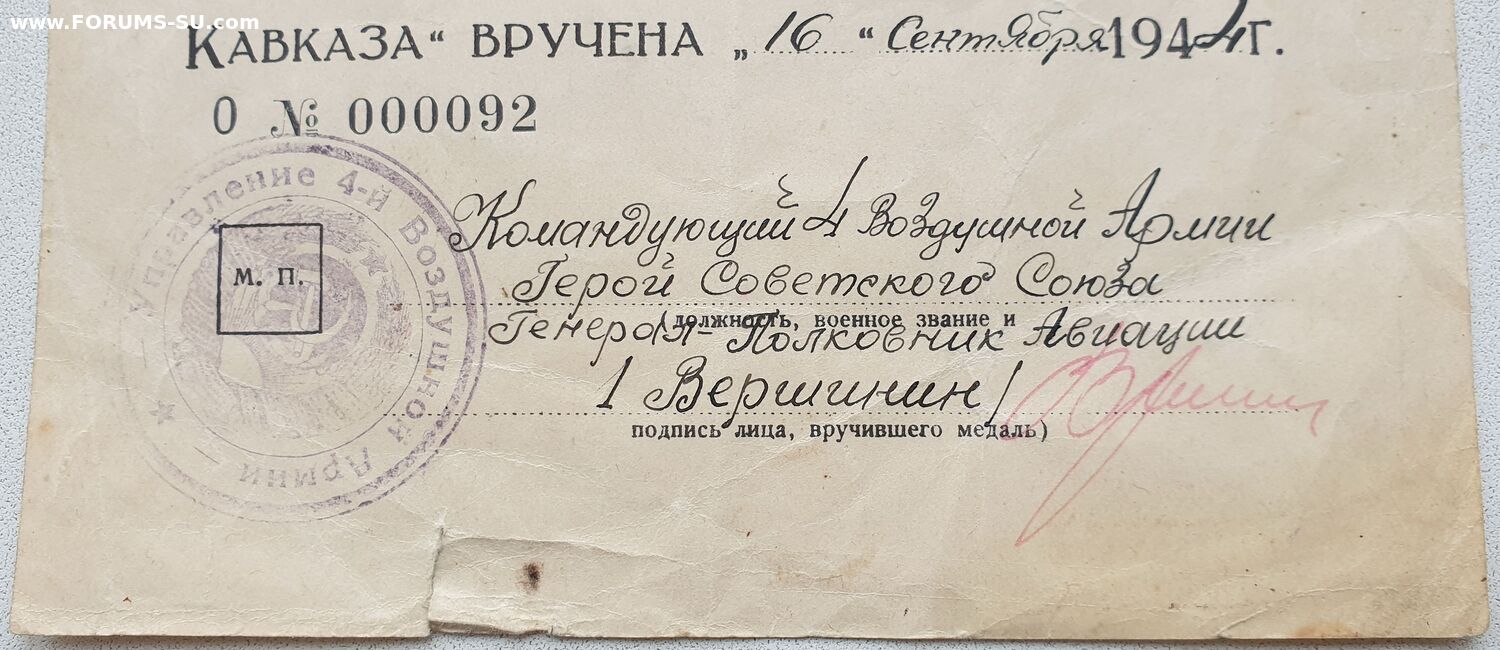 www.FORUMS-SU.com
КАВКАЗА“ ВРУЧЕНА „16“ Сентября 1944 г.
О № 000092
Управление 4-й Воздушной Армии
М. П.
Командующий 4 Воздушной Армии
Герой Советского Союза
(должность, военное звание и
Генерал-Полковник Авиации
/ Вершинин /
подпись лица, вручившего медаль)